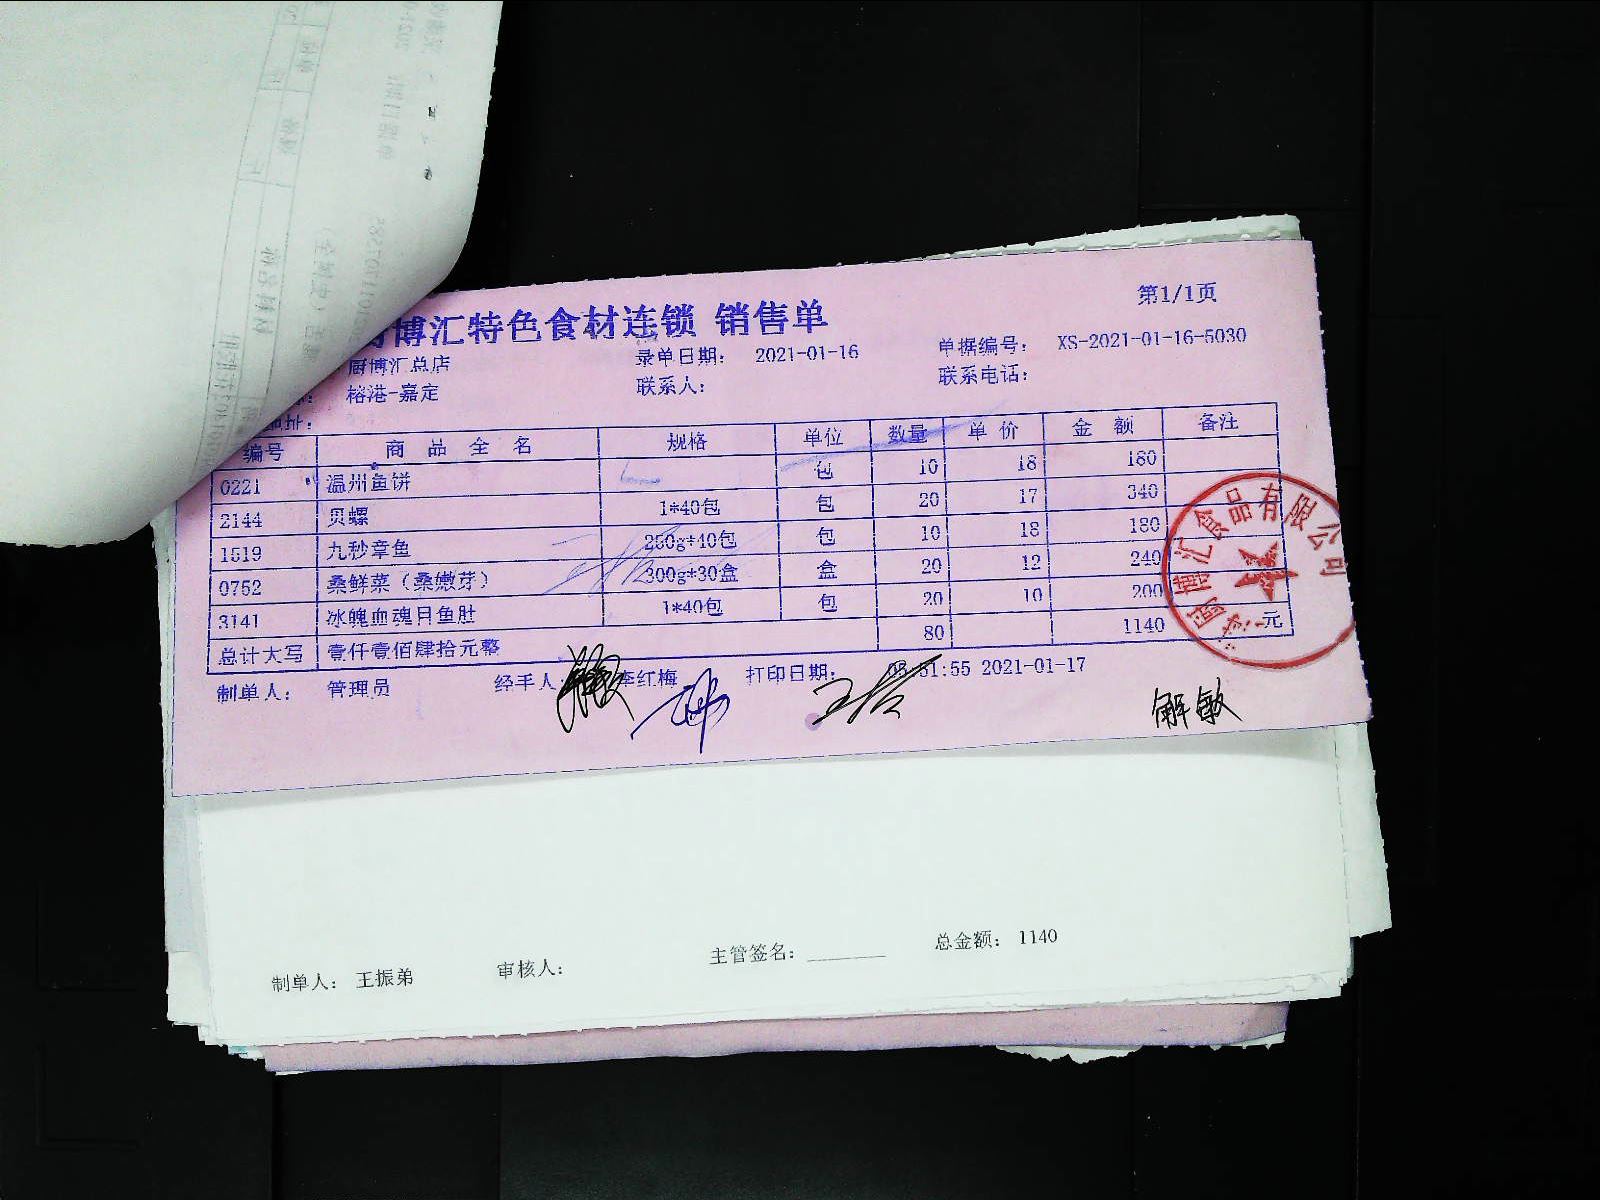 第1/1页
博汇特色食材连锁 销售单
厨博汇总店 录单日期： 2021-01-16 单据编号： XS-2021-01-16-5030
榕港-嘉定 联系人： 联系电话：
地址：
编号 商品全名 规格 单位 数量 单价 金额 备注
0221 温州鱼饼 包 10 18 180
2144 贝螺 1*40包 包 20 17 340
1519 九秒章鱼 250g*40包 包 10 18 180
0752 桑鲜菜（桑嫩芽） 300g*30盒 盒 20 12 240
3141 冰魄血魂目鱼肚 1*40包 包 20 10 200
总计大写 壹仟壹佰肆拾元整 80 1140 元
制单人： 管理员 经手人 李红梅 打印日期： 05:51:55 2021-01-17
解敏
博汇食品有限公司
制单人： 王振弟 审核人： 主管签名： 总金额： 1140